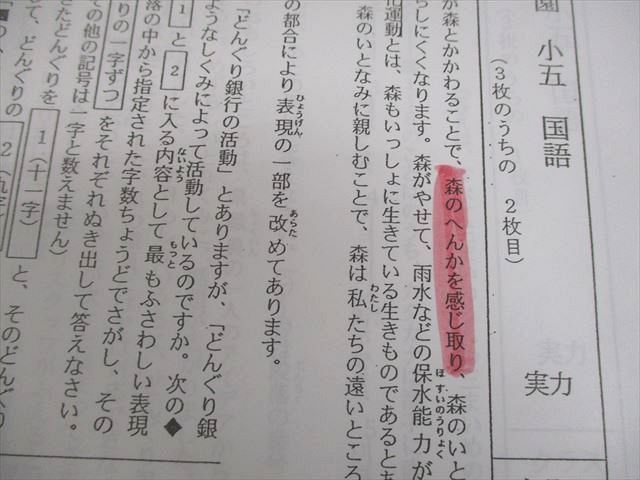 園 小五 国語
(3枚のうちの 2枚目)
実力
が森とかかわることで、森のへんかを感じ取り、森のいと
らしにくくなります。森がやせて、雨水などの保水能力が
運動とは、森もいっしょに生きている生きものであるとち
森のいとなみに親しむことで、森は私たちの遠いところ
の都合により表現の一部を改めてあります。
「どんぐり銀行の活動」とありますが、「どんぐり銀
ようなしくみによって活動しているのですか。次の◆
1 と 2 に入る内容として最もふさわしい表現
落の中から指定された字数ちょうどでさがし、その
りの一字ずつ をそれぞれぬき出して答えなさい。
その他の記号は一字と数えません)
て、どんぐりを 1(十一字)
、どんぐりの 2(九字) と、そのどんぐり